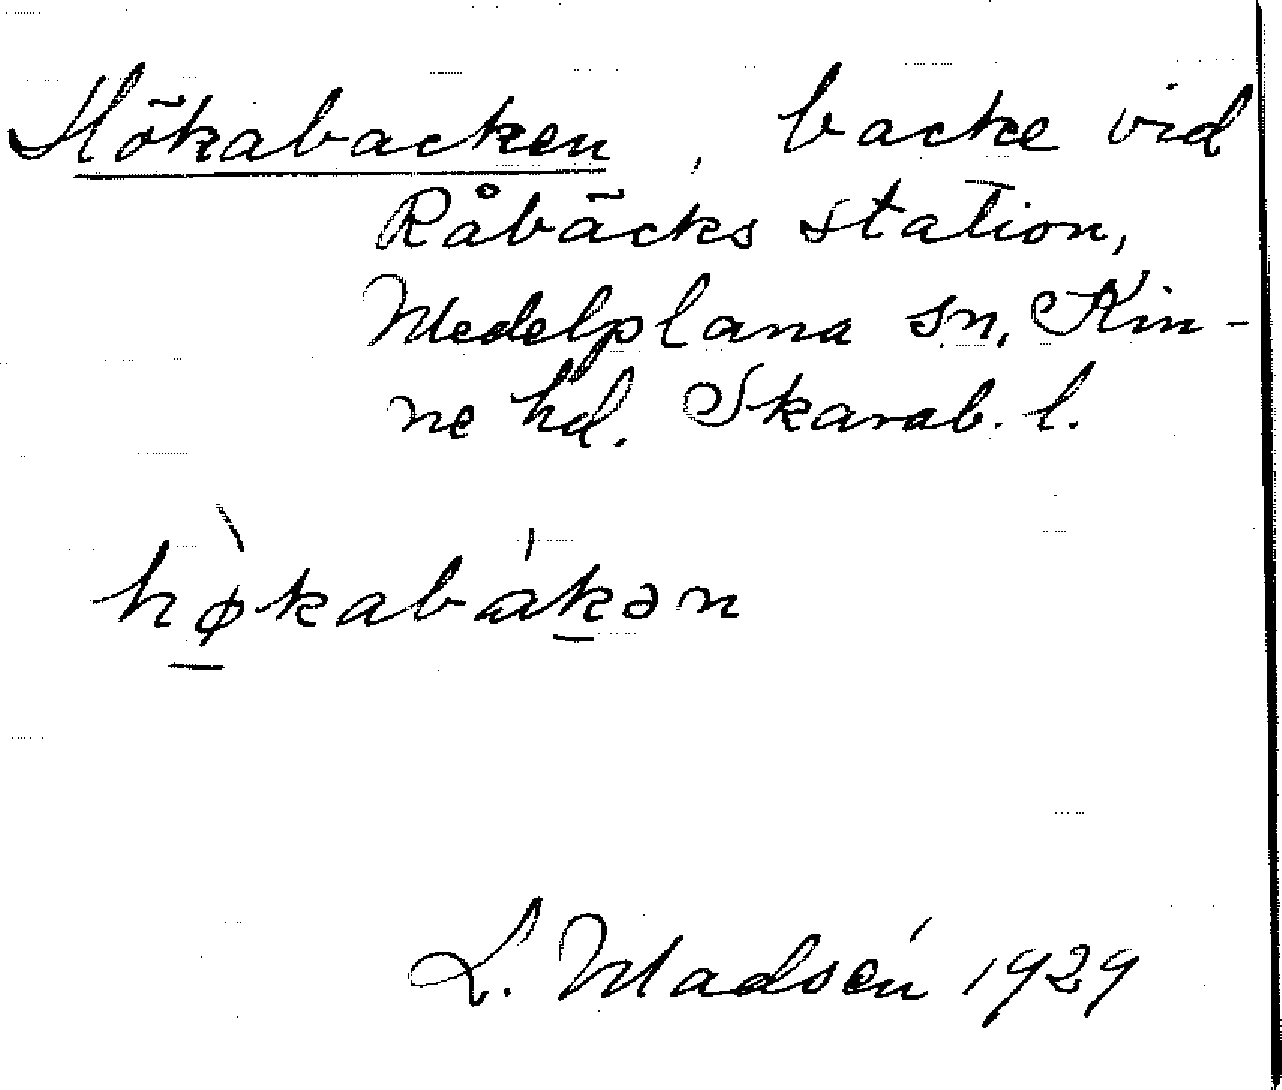 Hökabacken, backe vid
Råbäcks station,
Medelplana sn, Kin-
ne hd. Skarab. l.
hø̀kabákən
L. Madsén 1929